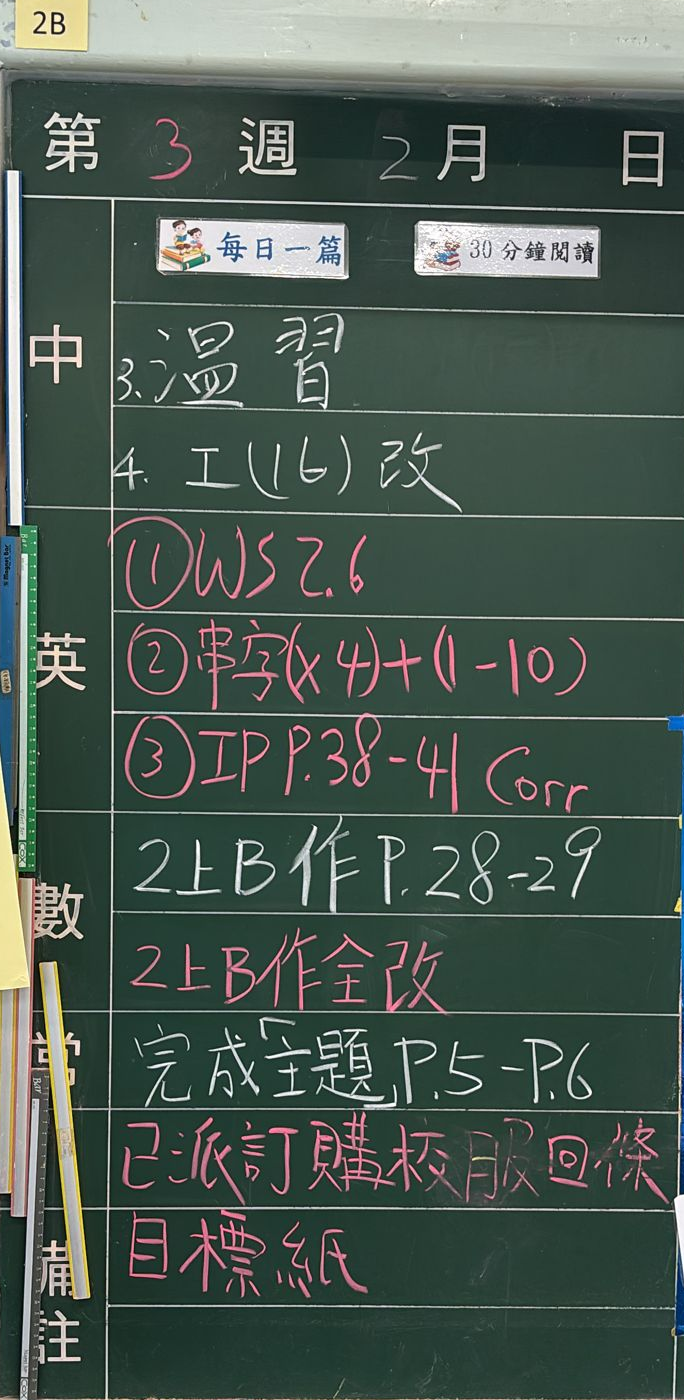 2B
第 3 週 2 月 日
每日一篇 30分鐘閱讀
中
3.溫習
4. 工(16)改
英
①WS 2.6
②串字(x4)+(1-10)
③IP P.38-41 Corr
數
2上B作P.28-29
2上B作全改
常
完成「主題」P.5-P.6
已派訂購校服回條
備註
目標紙